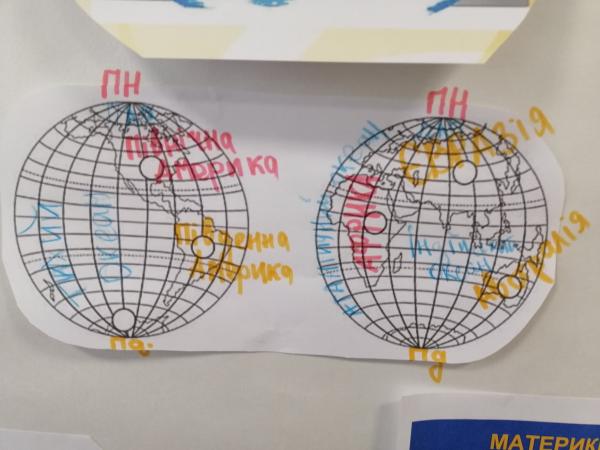 ПН
Північна
Америка
Тихий
океан
Південна
Америка
Пд.
ПН
Євразія
Африка
Індійський
океан
Австралія
Пд
МАТЕРИК